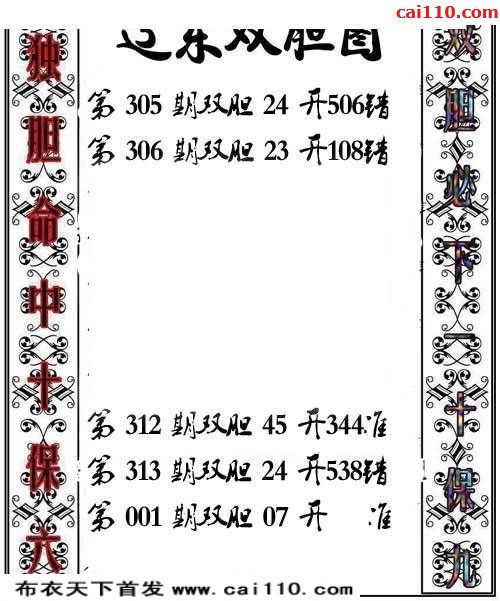 cai110.com
东双胆图
独胆命中十保六
双胆必下一十保九
第 305 期双胆 24 开506错
第 306 期双胆 23 开108错
第 312 期双胆 45 开344准
第 313 期双胆 24 开538错
第 001 期双胆 07 开 准
布衣天下首发 www.cai110.com